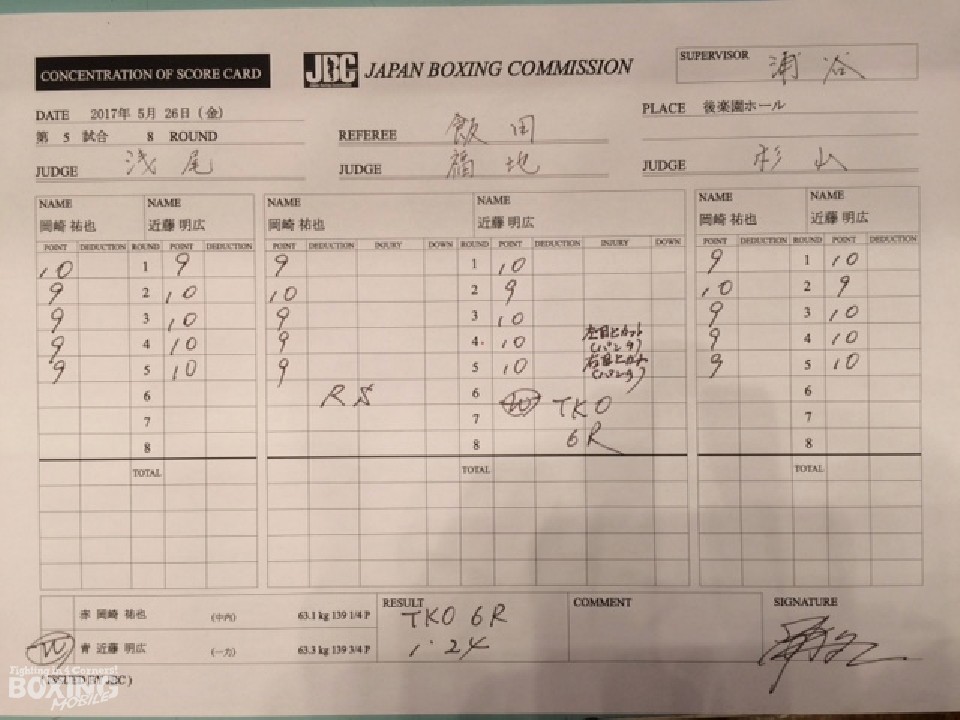 CONCENTRATION OF SCORE CARD
JBC JAPAN BOXING COMMISSION
SUPERVISOR 浦谷
DATE 2017年 5月 26日 (金)
PLACE 後楽園ホール
第 5 試合 8 ROUND
REFEREE 飯田
JUDGE 浅尾
JUDGE 福地
JUDGE 杉山
NAME NAME NAME NAME NAME NAME
岡崎 祐也 近藤 明広 岡崎 祐也 近藤 明広 岡崎 祐也 近藤 明広
POINT DEDUCTION ROUND POINT DEDUCTION POINT DEDUCTION INJURY DOWN ROUND POINT DEDUCTION INJURY DOWN POINT DEDUCTION ROUND POINT DEDUCTION
10 1 9 9 1 10 9 1 10
9 2 10 10 2 9 10 2 9
9 3 10 9 3 10 9 3 10
9 4 10 9 4 10 左目上カット (パンチ) 9 4 10
9 5 10 9 5 10 右目上カット (パンチ) 9 5 10
6 RS 6 W TKO 6
7 7 7
8 8 6R 8
TOTAL TOTAL TOTAL
赤 岡崎 祐也 (中内) 63.1 kg 139 1/4 P
W 青 近藤 明広 (一力) 63.3 kg 139 3/4 P
RESULT TKO 6R
1:24
COMMENT
SIGNATURE
(ISSUED BY JBC)
Fighting in 4 Corners!
BOXING
MOBILE